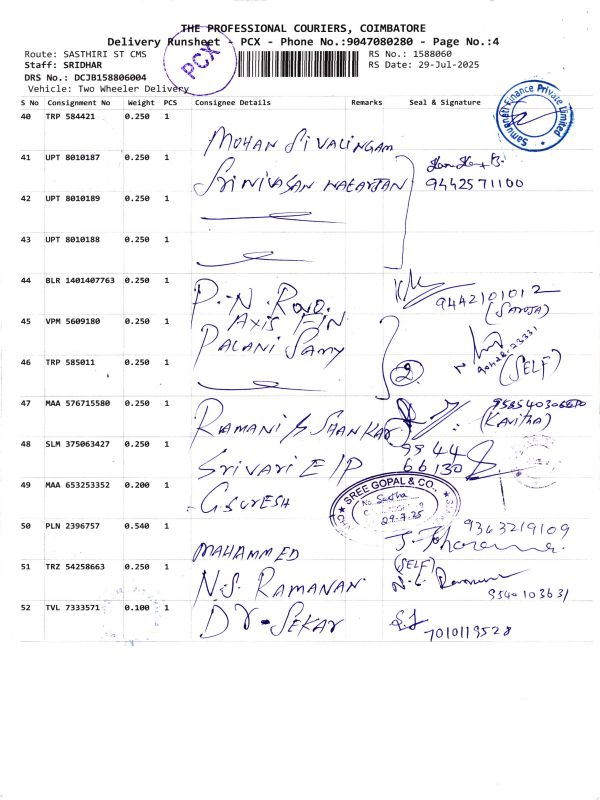 THE PROFESSIONAL COURIERS, COIMBATORE
Delivery Runsheet - PCX - Phone No.:9047080280 - Page No.:4
Route: SASTHIRI ST CMS
RS No.: 1588060
Staff: SRIDHAR
RS Date: 29-Jul-2025
DRS No.: DCJB158806004
Vehicle: Two Wheeler Delivery
PCX
Samunnati Finance Private Limited
S No Consignment No Weight PCS Consignee Details Remarks Seal & Signature
40 TRP 584421 0.250 1 MOHAN SIVALINGAM
41 UPT 8010187 0.250 1 SRINIVASAN NATARJAN
9442571100
42 UPT 8010189 0.250 1
43 UPT 8010188 0.250 1
44 BLR 1401407763 0.250 1 P.N. ROAD.
9442101012
(SAROJA)
45 VPM 5609180 0.250 1 AXIS FIN
PALANI SAMY
46 TRP 585011 0.250 1
2
(SELF)
47 MAA 576715580 0.250 1 RAMANI S SHANKAR
(Kavitha)
48 SLM 375063427 0.250 1 SRIVARI E/P
9944
66130
49 MAA 653253352 0.200 1 G.SURESH
SREE GOPAL & CO.,
29.7.25
50 PLN 2396757 0.540 1 MAHAMMED
9363219109
51 TRZ 54258663 0.250 1 N.S. RAMANAN
(SELF)
9540103631
52 TVL 7333571 0.100 1 DR-SEKAR
7010119528